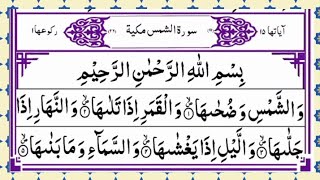 اٰیاتها ۱۵ سورة الشمس مکیة رکوعها ۱
بِسْمِ اللّٰهِ الرَّحْمٰنِ الرَّحِيْمِ
وَالشَّمْسِ وَضُحٰىهَا ۙ۱ وَالْقَمَرِ اِذَا تَلٰىهَا ۙ۲ وَالنَّهَارِ اِذَا
جَلّٰىهَا ۙ۳ وَالَّيْلِ اِذَا يَغْشٰىهَا ۙ۴ وَالسَّمَآءِ وَمَا بَنٰىهَا ۙ۵